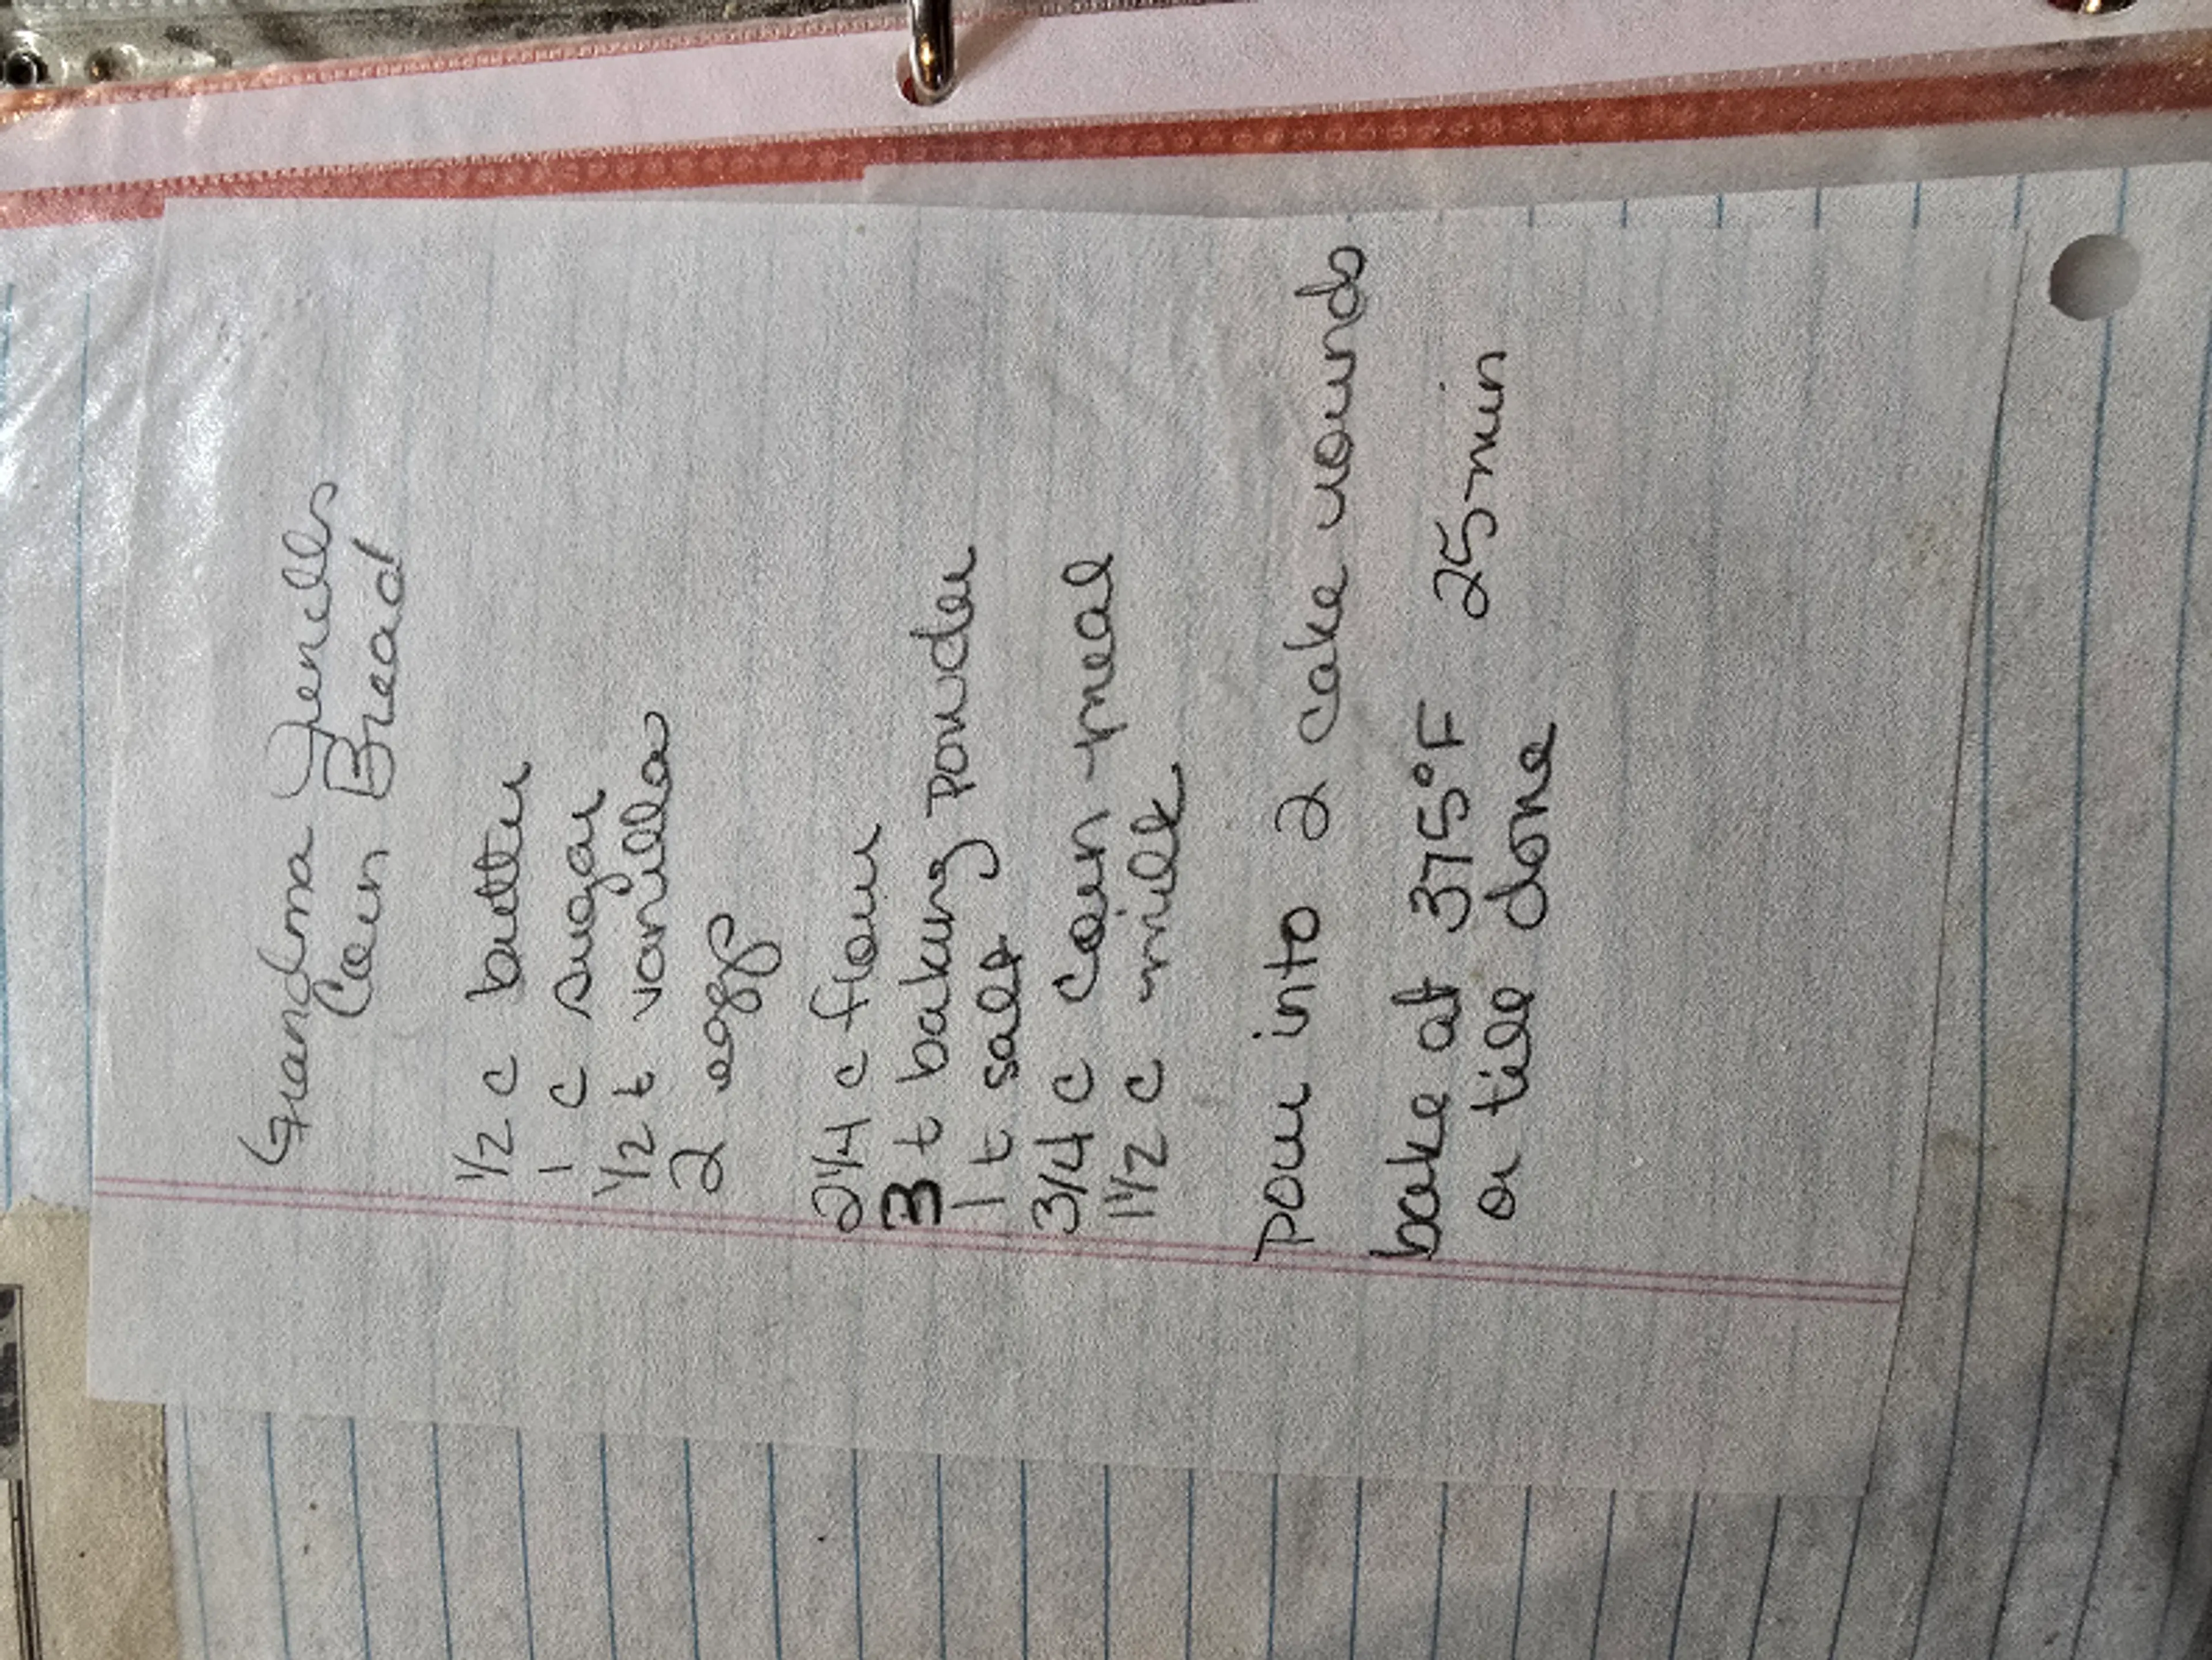 Grandma Jencks
Corn Bread
1/2 c butter
1 c sugar
1/2 t vanilla
2 eggs
2 1/4 c flour
3 t baking powder
1 t salt
3/4 c corn meal
1 1/2 c milk
pour into 2 cake rounds
bake at 375°F 25 min
or till done